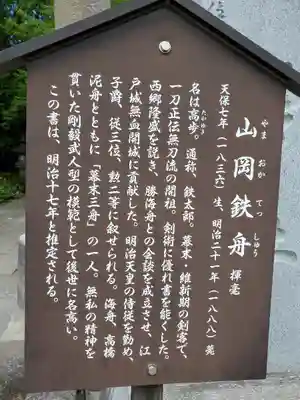 山岡鉄舟 揮毫
やま おか てっ しゅう
天保七年(一八三六)生、明治二十一年(一八八八)薨
名は高歩。通称、鉄太郎。幕末・維新期の剣客で、
たかゆき
一刀正伝無刀流の開祖。剣術に優れ書を能くした。
西郷隆盛を説き、勝海舟との会談を成立させ、江
戸城無血開城に貢献した。明治天皇の侍従を勤め、
子爵、従三位、勲二等に叙せられる。海舟、高橋
泥舟とともに「幕末三舟」の一人。無私の精神を
貫いた剛毅武人型の模範として後世に名高い。
この書は、明治十七年と推定される。